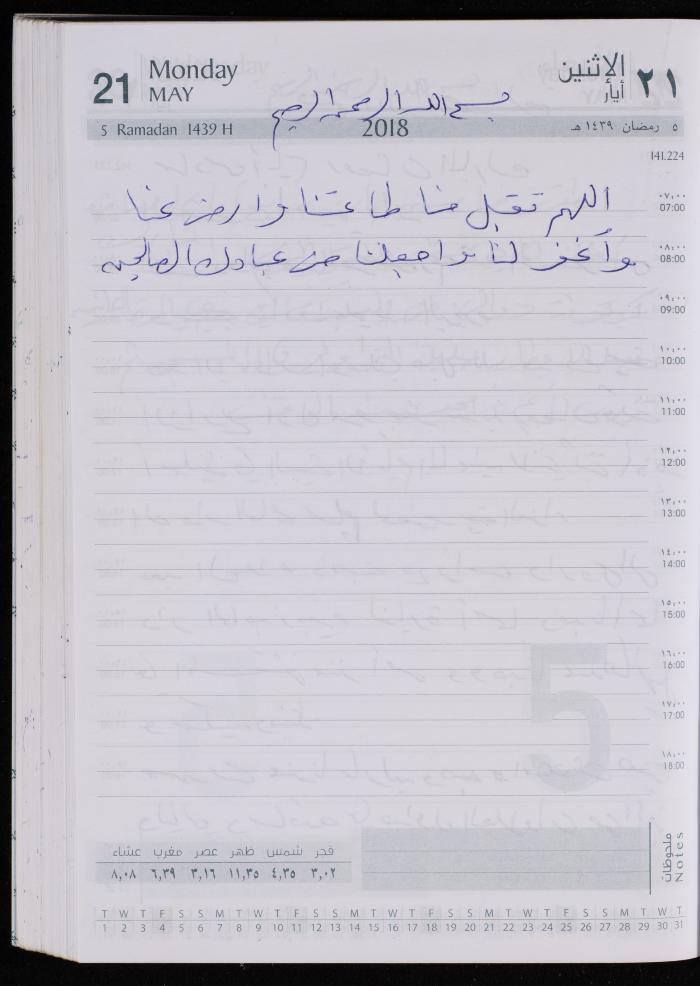 21 Monday الاثنين ٢١
MAY أيار
بسم الله الرحمن الرحيم
5 Ramadan 1439 H 2018 ٥ رمضان ١٤٣٩ هـ
141.224
اللهم تقبل منا طاعتنا وارض عنا
٠٧:٠٠
07:00
واغفر لنا واجعلنا من عبادك الصالحين
٠٨:٠٠
08:00
٠٩:٠٠
09:00
١٠:٠٠
10:00
١١:٠٠
11:00
١٢:٠٠
12:00
١٣:٠٠
13:00
١٤:٠٠
14:00
١٥:٠٠
15:00
١٦:٠٠
16:00
١٧:٠٠
17:00
١٨:٠٠
18:00
5
ملحوظات
Notes
فجر شمس ظهر عصر مغرب عشاء
٣,٠٢ ٤,٣٥ ١١,٣٥ ٣,١٦ ٦,٣٩ ٨,٠٨
T W T F S S M T W T F S S M T W T F S S M T W T F S S M T W T
1 2 3 4 5 6 7 8 9 10 11 12 13 14 15 16 17 18 19 20 21 22 23 24 25 26 27 28 29 30 31